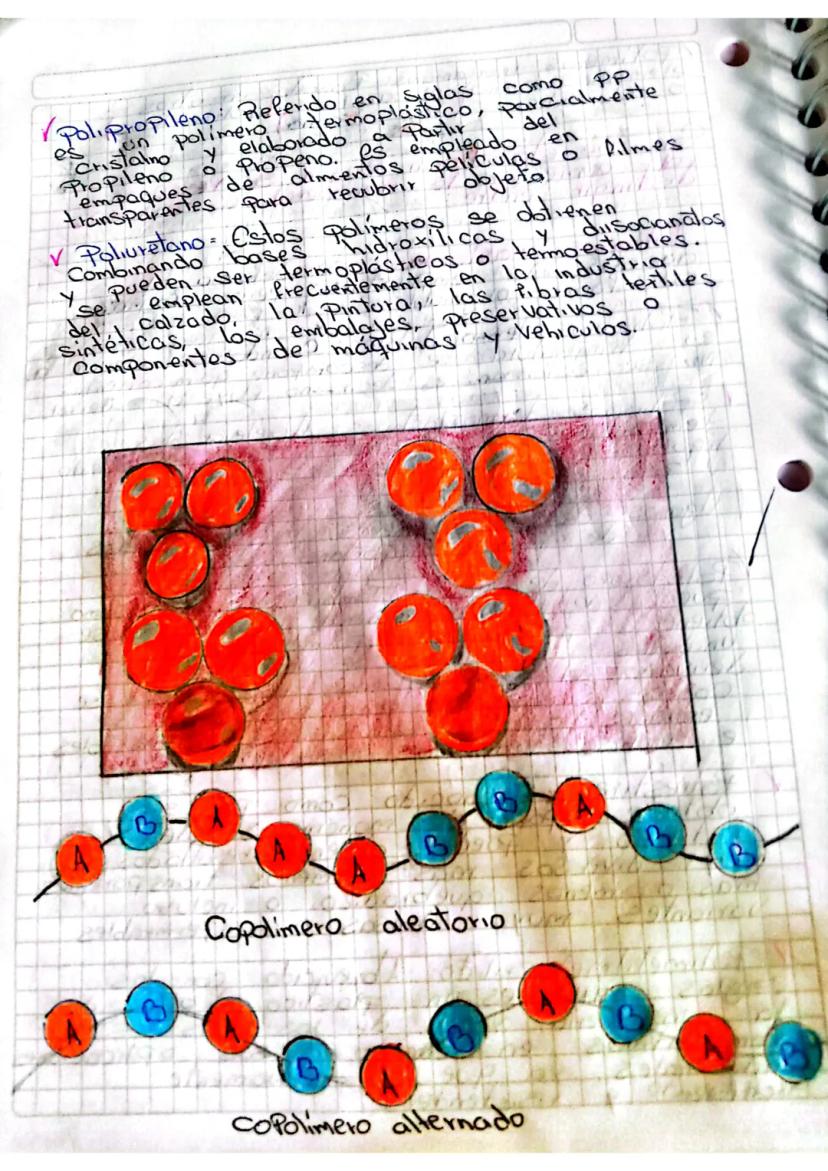 ✓ Polipropileno: Referido en siglas como PP
es un polímero termoplástico, parcialmente
cristalino y elaborado a partir del
propileno o propeno. Es empleado en
empaques de alimentos películas o filmes
transparentes para recubrir objeto.
✓ Poliuretano = Estos polímeros se obtienen
combinando bases hidroxílicas y diisocianatos
y pueden ser termoplásticos o termoestables.
se emplean frecuentemente en la industria
del calzado, la pintura, las fibras textiles
sintéticas, los embalajes, preservativos o
componentes de máquinas y vehiculos.
A B A A A B B A B B
Copolímero aleatorio
A B A B A B A B A B
Copolímero alternado